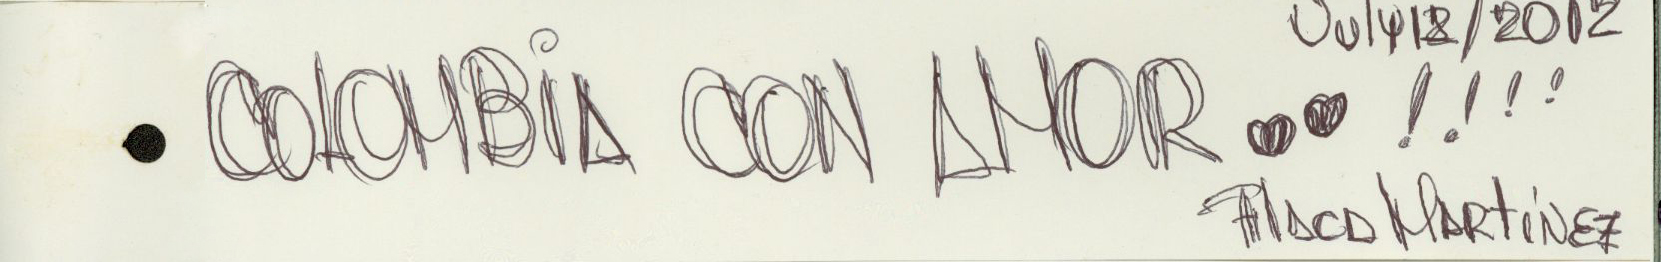 July 12/2012
COLOMBIA CON AMOR !!!!
MARTINEZ